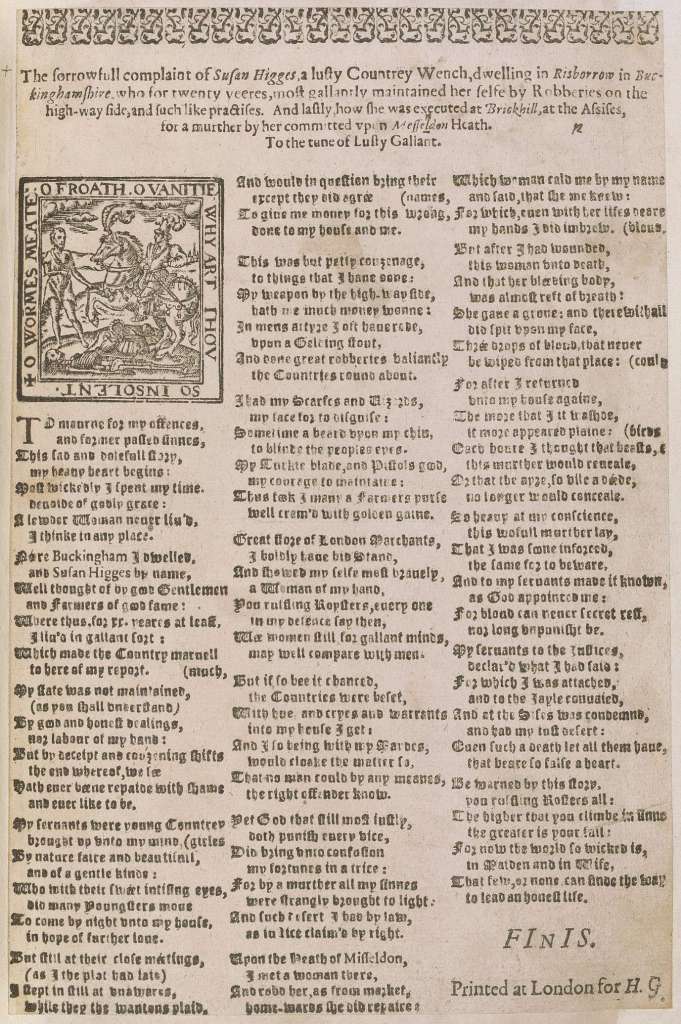 The sorrowfull complaint of Susan Higges, a lusty Countrey Wench, dwelling in Risborrow in Buc-
kinghamshire, who for twenty yeeres, most gallantly maintained her selfe by Robberies on the
high-way side, and such like practises. And lastly, how she was executed at Brickhill, at the Assises,
for a murther by her committed vpon Messeldon Heath.
To the tune of Lusty Gallant.
O FROATH. O VANITIE
WHY ART THOV
SO INSOLENT.
O WORMES MEATE
TO mourne for my offences,
and former passed sinnes,
This sad and dolefull story,
my heauy heart begins:
Most wickedly I spent my time.
deuoide of godly grace:
A lewder Woman neuer liu'd,
I thinke in any place.
Nere Buckingham I dwelled,
and Susan Higges by name,
Well thought of by good Gentlemen
and Farmers of good fame:
Where thus, for xx. yeares at least,
I liu'd in gallant sort:
Which made the Country maruell
to here of my report. (much,
My state was not maintained,
(as you shall vnderstand)
By good and honest dealings,
nor labour of my hand:
But by deceipt and couzening shifts
the end whereof, we see
Hath euer beene repaide with shame
and euer like to be.
My seruants were young Countrey
brought vp vnto my mind, (girles
By nature faire and beautifull,
and of a gentle kinde:
Who with their sweet intising eyes,
did many Youngsters moue
To come by night vnto my house,
in hope of further loue.
But still at their close meetings,
(as I the plat had laid)
I stept in still at vnawares,
while they the wantons plaid.
And would in question bring their
except they did agree (names,
To giue me money for this wrong,
done to my house and me.
This was but petty couzenage,
to things that I haue done:
My weapon by the high-way side,
hath me much money wonne:
In mens attyre I oft haue rode,
vpon a Gelding stout,
And done great robberies valiantly
the Countries round about.
I had my Scarfes and Vizards,
my face for to disguise:
Sometime a beard vpon my chin,
to blinde the peoples eyes.
My Turkie blade, and Pistols good,
my courage to maintaine:
Thus took I many a Farmers purse
well cram'd with golden gaine.
Great store of London Marchants,
I boldly haue bid Stand,
And shewed my selfe most brauely,
a Woman of my hand,
You rufling Roysters, euery one
in my defence say then,
Wee women still for gallant minds,
may well compare with men.
But if so bee it chanced,
the Countries were beset,
With hue, and cryes and warrants
into my house I get:
And I so being with my Maydes,
would cloake the matter so,
That no man could by any meanes,
the right offender know.
Yet God that still most iustly,
doth punish euery vice,
Did bring vnto confusion
my fortunes in a trice:
For by a murther all my sinnes
were strangly brought to light:
And such desert I had by law,
as iustice claim'd by right.
Vpon the Heath of Misseldon,
I met a woman there,
And robd her, as from market,
home-wards she did repaire:
Which woman cald me by my name
and said, that she me knew:
For which, euen with her lifes deare
my hands I did imbrew. (bloud.
But after I had wounded,
this woman vnto death,
And that her bleeding body,
was almost reft of breath:
She gaue a grone: and therewithall
did spit vpon my face,
Three drops of bloud, that neuer
be wiped from that place: (could
For after I returned
vnto my house againe,
The more that I it washt,
it more appeared plaine: (birds
Each houre I thought that beasts, &
this murther would reueale,
Or that the ayre, so vile a deede,
no longer would conceale.
So heauy at my conscience,
this wofull murther lay,
That I was soone inforced,
the same for to bewray.
And to my seruants made it known,
as God appointed me:
For bloud can neuer secret rest,
nor long vnpunisht be.
My seruants to the Iustices,
declar'd what I had said:
For which I was attached,
and to the Iayle conuaied,
And at the Sises was condemnd,
and had my iust desert:
Euen such a death let all them haue,
that beare so false a heart.
Be warned by this story.
you rufling Rosters all:
The higher that you climbe in sinne
the greater is your fall:
For now the world so wicked is,
in Maiden and in Wife,
That few, or none can finde the way
to lead an honest life.
FINIS.
Printed at London for H. G.